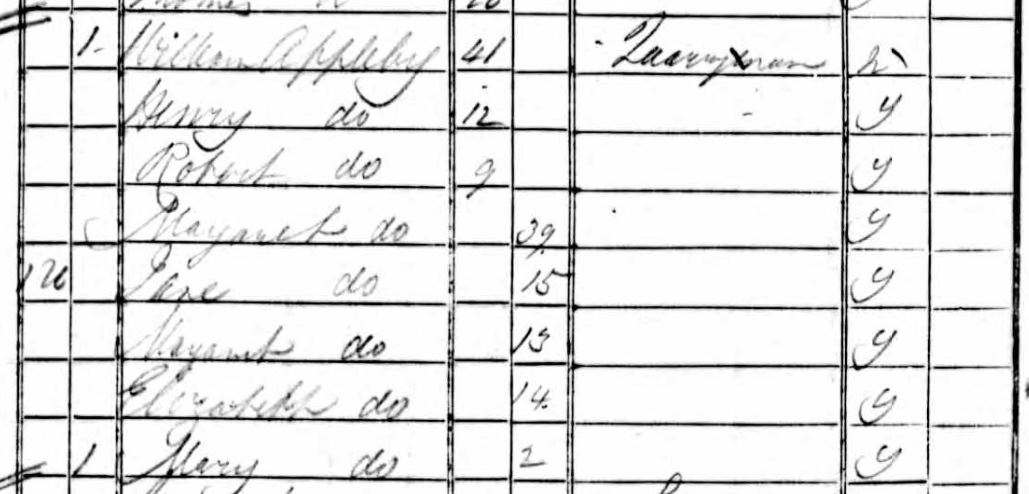 1 William Appleby 41 Quarryman N
Henry do 12 y
Robert do 9 y
Margaret do 39 y
Jane do 15 y
Margaret do 13 y
Elizabeth do 14 y
1 Mary do 2 y